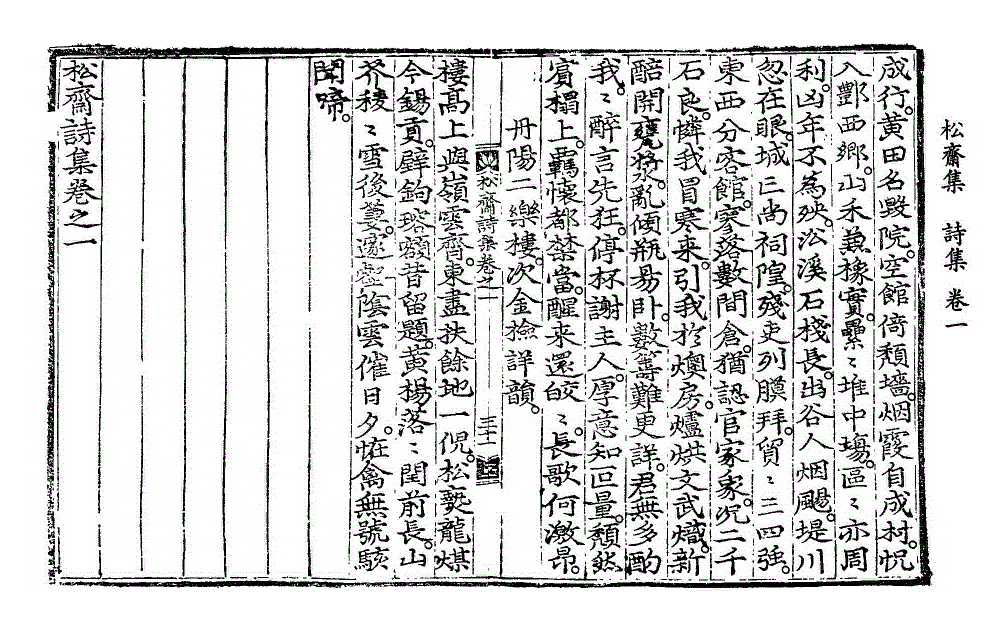 松齋集 詩集 卷一
成行。黃田名毀院。空館倚頹墻。烟霞自成村。怳
入酆西鄉。山禾兼橡實。纍〻堆中場。區〻亦周
利。凶年不為殃。㳂溪石棧長。出谷人烟颺。堤川
忽在眼。城亡尚祠隍。殘吏列膜拜。貿〻三四強。
東西分客館。寥落數間倉。猶認官家象。况二千
石良。憐我冒寒来。引我於燠房。爐烘文武熾。新
醅開甕漿。亂傾瓶易卧。數籌難更詳。君無多酌
我。〻醉言先狂。停杯謝主人。厚意知叵量。頹然
賓榻上。羈懷都禁當。醒来還皎〻。長歌何激昂。
丹陽二樂樓。次金撿詳韻。
松齋詩集卷之一 三十一
樓高上與嶺雲齊。東盡扶餘地一倪。松甃龍煤
今錫貢。壁鉤額昔留題。黃楊落〻閏前長。山
芥稜〻雪後萋。邃壑陰雲催日夕。恠禽無號駭
聞啼。
松齋詩集卷之一